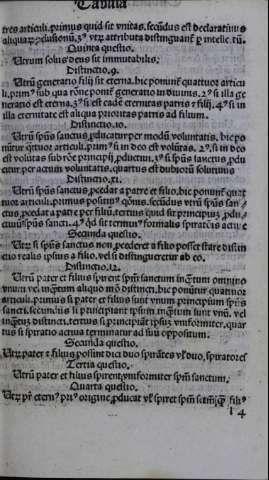 Tabula
tres articuli. primus quid sit vnitas. secūdus est declaratiuus
aliquaꝝ ꝯclusionū. 3ꝰ vtꝝ attributa distinguant᷑ ꝑ intellc̄tū.
Quinta questio.
Utrum solus deus sit immutabilis.
Distinctio .9.
Utrū generatio filij sit eterna. hic ponunt᷑ quattuor articu
li. primꝰ sub qua rōne ponit᷑ generatio in diuinis. 2ꝰ si illa ge
neratio est eterna. 3ꝰ si est eadē eternitas patris ⁊ filij. 4ꝰ si in
illa eternitate est aliqua prioritas patris ad filium.
Distinctio .10.
Utrū spūs sanctus ꝓducatur per modū voluntatis. hic po
nūtur q̄ttuor articuli. primꝰ si in deo est volūtas. 2ꝰ. si in deo
est volūtas sub rōe principij ꝓductiui. 3ꝰ si spūs sanctus ꝓdu
citur per actum voluntatis. quartus est dubiorū solutiuus
Distinctio .11.
Utrū spūs sanctus ꝓcedat a patre et filio. hic ponunt᷑ quat
tuor articuli. primus positiuꝰ q̄ōnis. secūdus vtrū spūs san
ctus ꝓcedat a patre per filiū. tertius quid sit principiuꝫ ꝓdu
ctiuū spūs sancti. 4ꝰ qd sit terminꝰ formalis spiratōis actiue
Secunda questio.
Utꝝ si spūs sanctus non ꝓcederet a filio posset stare distin
ctio realis ipsius a filio. vel si distingueretur ab eo.
Distinctio .12.
Utrū pater et filius spirent spm̄ sanctum inq̄ꝫtum omnino
vnum vel inq̄ꝫtum aliquo mō distincti. hic ponūtur quattuor
articuli. primus si pater et filius sunt vnum principium spūs
sancti. secundus si principiant ipsum inq̄ꝫtum sunt vnū. vel
inq̄ꝫtuꝫ distincti. tertius si principiāt ipsuꝫ vniformiter. quar
tus si spiratio actiua terminatur ad suū oppositum.
Secunda questio.
Utꝝ pater ⁊ filius possint dici duo spirātes vl̓ duo spiratores
Tertia questio.
Utrū pater et filius spirent vniformiter spm̄ sanctum.
Quarta questio.
Utꝝ pr̄ eternꝰ priꝰ origine ꝓducat vl̓ spiret spm̄ sctm̄ q̄ꝫ filiꝰ
4